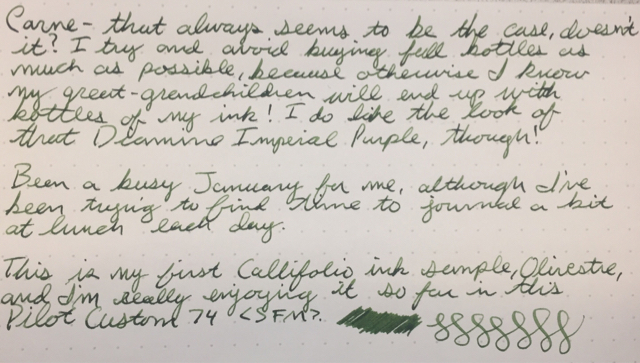 Carne- that always seems to be the case, doesn't
it? I try and avoid buying full bottles as
much as possible, because otherwise I know
my great-grandchildren will end up with
bottles of my ink! I do like the look of
that Diamine Imperial Purple, though!
Been a busy January for me, although I've
been trying to find time to journal a bit
at lunch each day.
This is my first Callifolio ink sample, Olivestre,
and I'm really enjoying it so far in this
Pilot Custom 74 <SFM>.